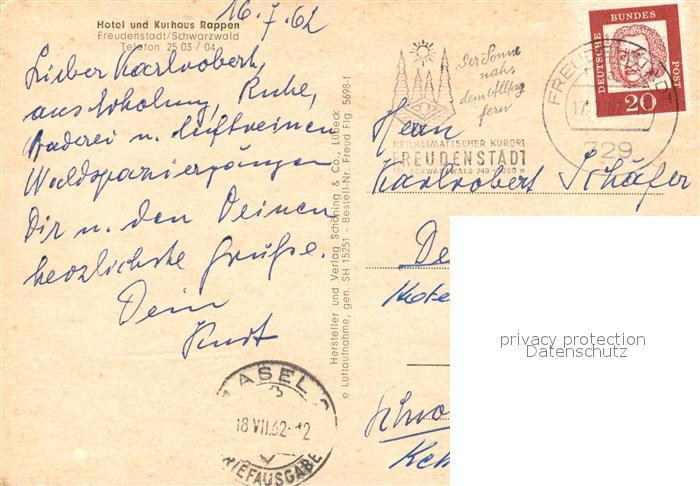 Hotel und Kurhaus Rappen
Freudenstadt/Schwarzwald
Telefon 25 03 / 04
16.7.62
Lieber Karlrobert,
aus Erholung, Ruhe,
Baderei u. luftreinen
Waldspaziergängen
Dir u. den Deinen
herzlichste Grüße.
Dein
Kurt
Hersteller und Verlag Schöning & Co., Lübeck
e Luftaufnahme, gen. SH 15251 - Bestell-Nr. Freud Flg. 5698-f
Der Sonne
nah,
dem Alltag
fern
HEILKLIMATISCHER KURORT
FREUDENSTADT
SCHWARZWALD 740-1000 m
FREUDENSTADT
729
DEUTSCHE
BUNDES
POST
20
Herrn
Karlrobert Schäfer
De
Hote
Schwo
BASEL 2
18 VII.62-12
BRIEFAUSGABE
privacy protection
Datenschutz